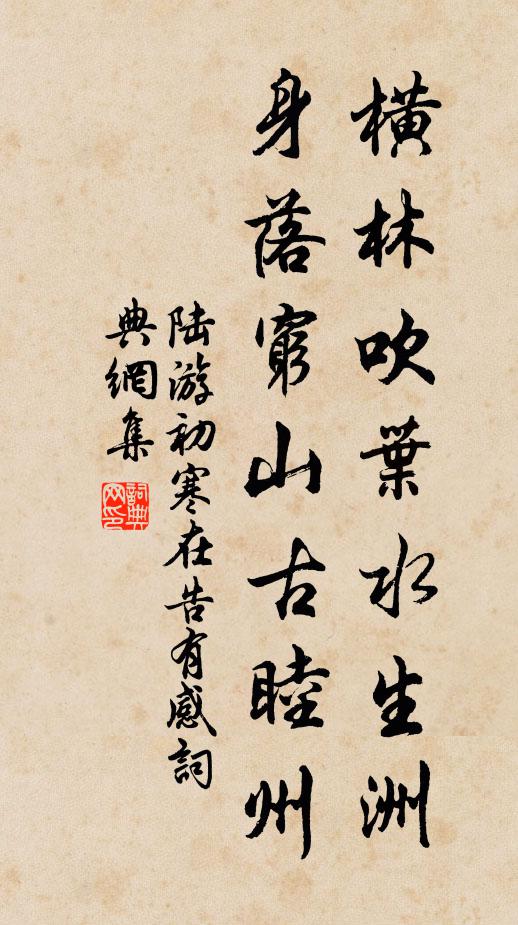 橫林吹葉水生洲
身落窮山古睦州
陆游初寒在告有感詞
典網集
詞典
网印